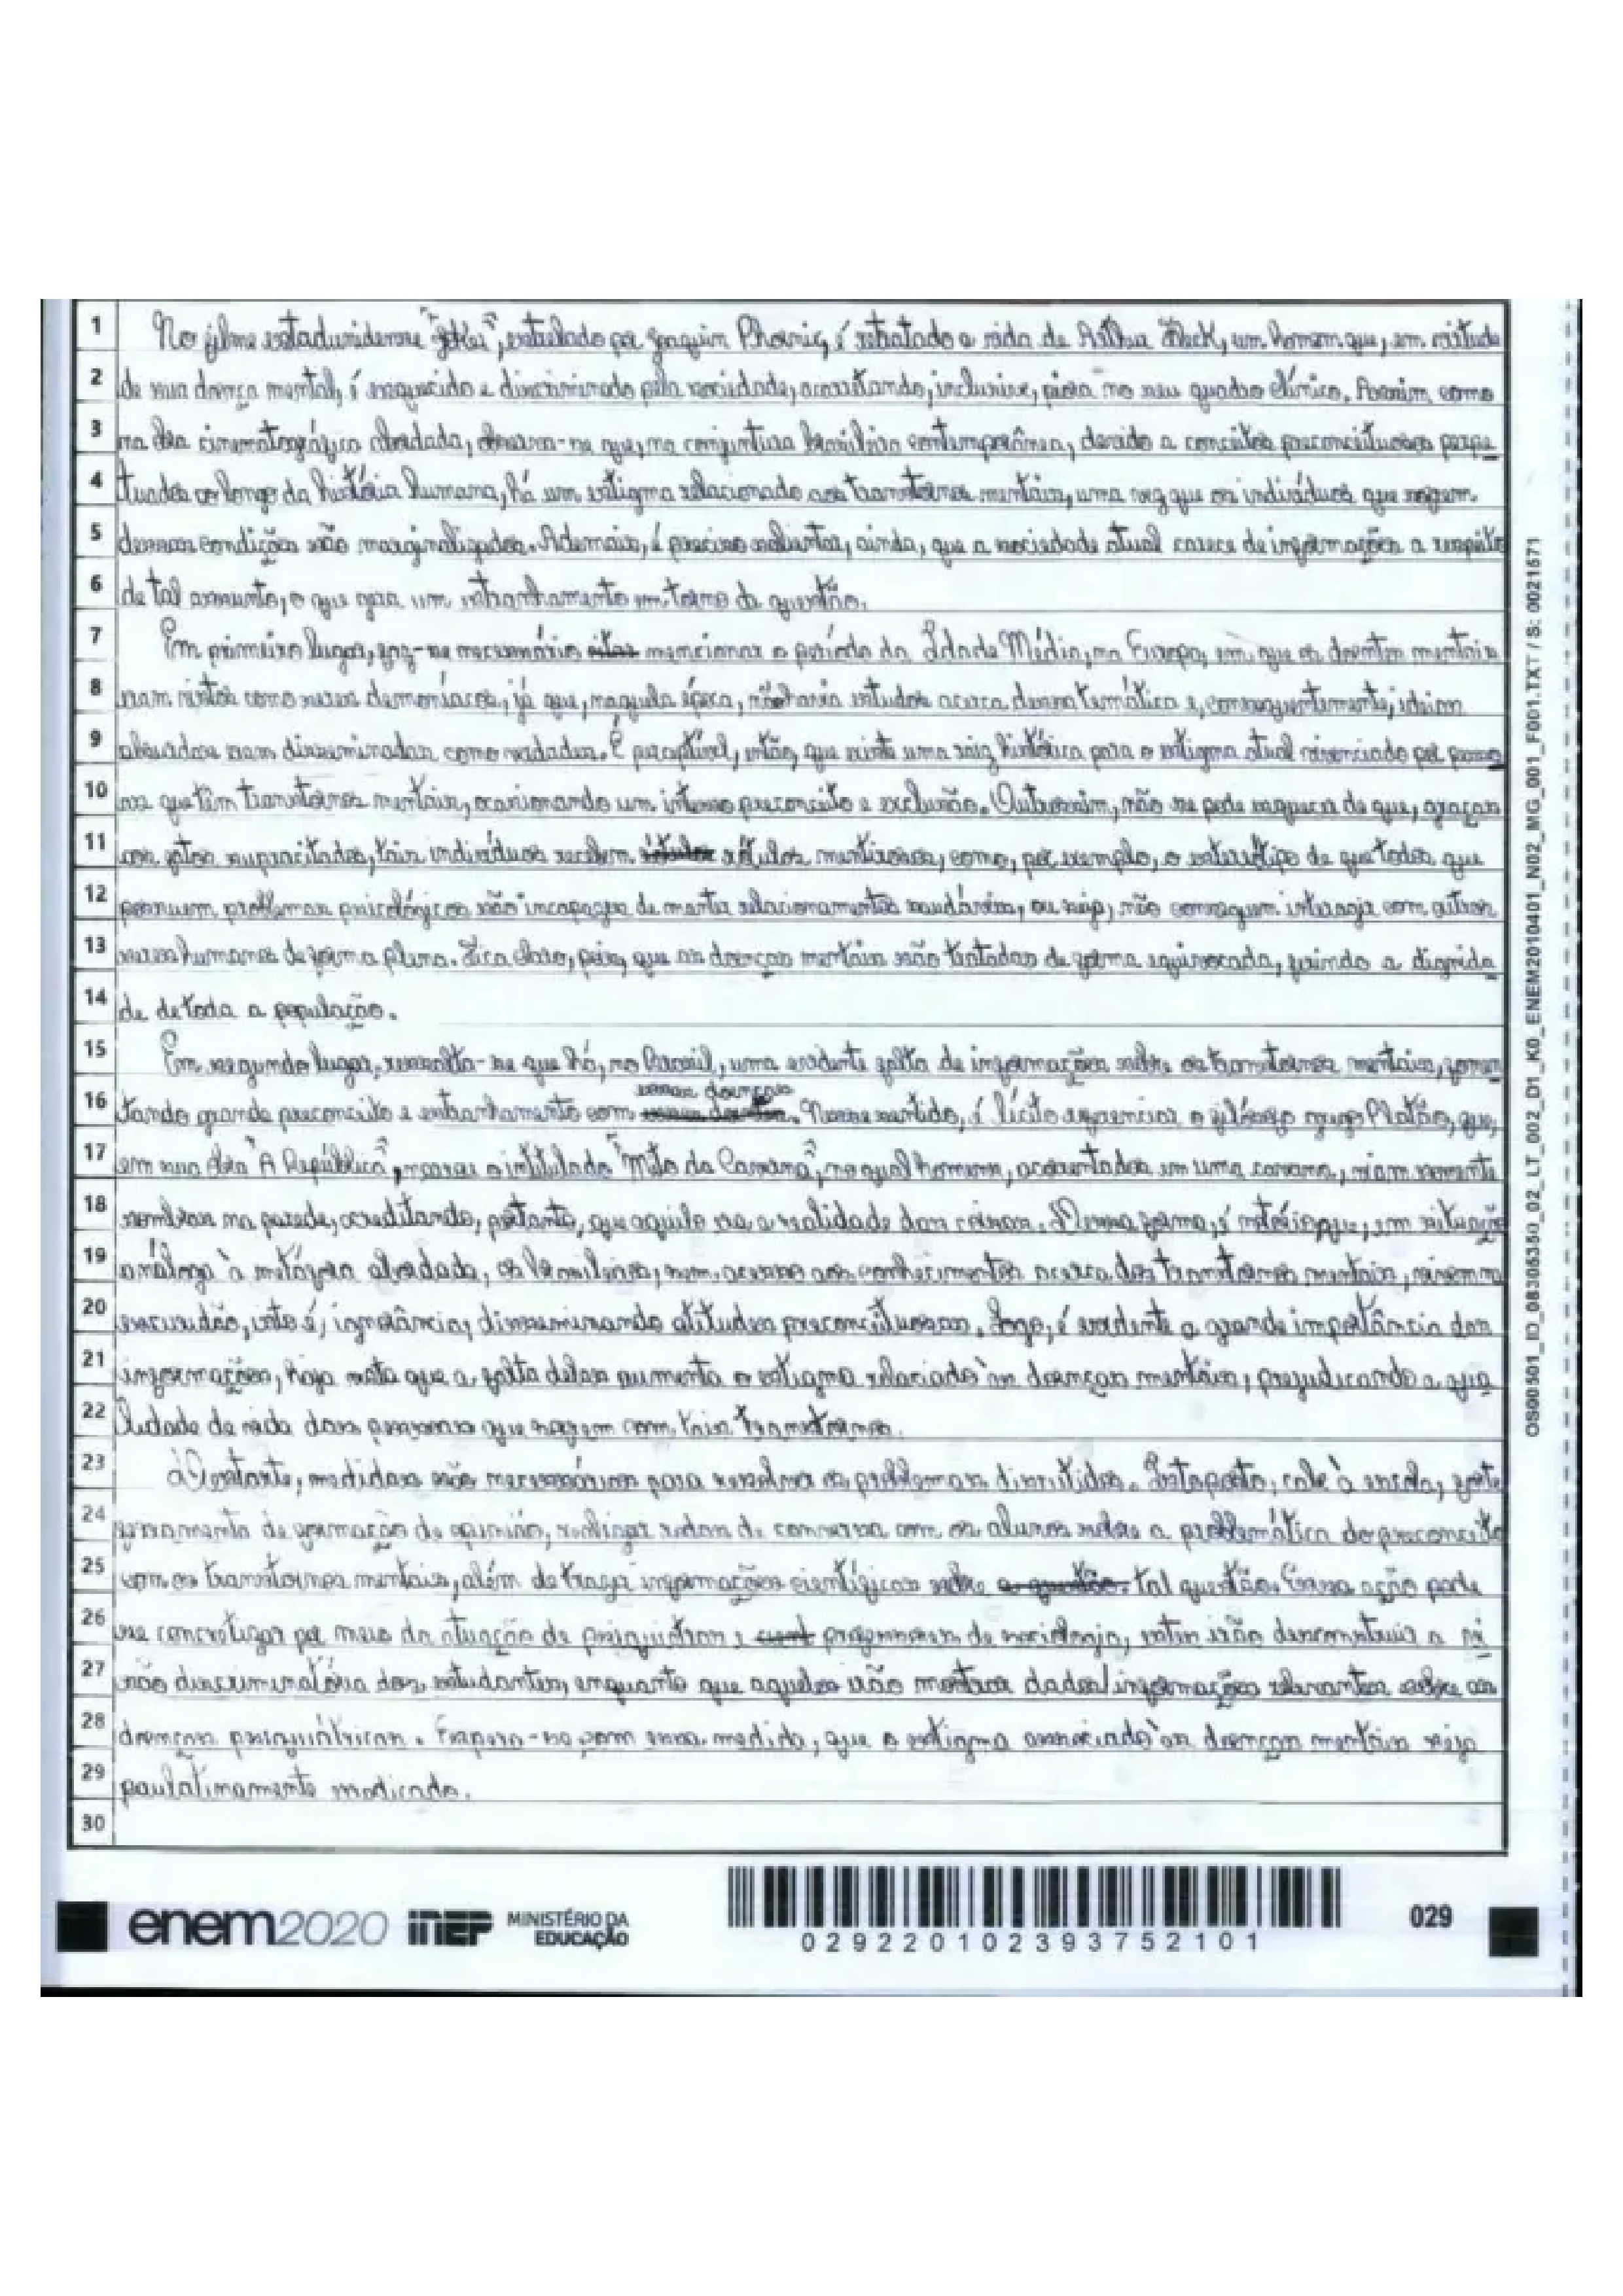 1 No filme estadunidense "Joker", estrelado por Joaquin Phoenix, é retratado a vida de Arthur Fleck, um homem que, em virtude
2 de sua doença mental, é esquecido e discriminado pela sociedade, acarretando, inclusive, piora no seu quadro clínico. Assim como
3 na obra cinematográfica abordada, observa-se que, na conjuntura brasileira contemporânea, devido a conceitos preconceituosos perpe
4 tuados ao longo da história humana, há um estigma relacionado aos transtornos mentais, uma vez que os indivíduos que sofrem
5 dessas condições são marginalizados. Ademais, é preciso salientar, ainda, que a sociedade atual carece de informações a respeito
6 de tal assunto, o que gera um estranhamento em torno da questão.
7 Em primeiro lugar, faz-se necessário citar mencionar o período da Idade Média, na Europa, em que os doentes mentais
8 eram vistos como seres demoníacos, já que, naquela época, não havia estudos acerca dessa temática e, consequentemente, ideias
9 absurdas eram disseminadas como verdades. É perceptível, então, que existe uma raiz histórica para o estigma atual vivenciado por pesso
10 as que têm transtornos mentais, ocasionando um intenso preconceito e exclusão. Outrossim, não se pode esquecer de que, graças
11 aos fatos supracitados, tais indivíduos recebem rótulos mentirosos, como, por exemplo, o estereótipo de que todos que
12 possuem problemas psicológicos são incapazes de manter relacionamentos saudáveis, ou seja, não conseguem interagir com outros
13 seres humanos de forma plena. Fica claro, pois, que as doenças mentais são tratadas de forma equivocada, ferindo a dignida
14 de de toda a população.
15 Em segundo lugar, ressalta-se que há, no Brasil, uma evidente falta de informações sobre os transtornos mentais, fomen
essas doenças
16 tando grande preconceito e estranhamento com. Nesse sentido, é lícito referenciar o filósofo grego Platão, que,
17 em sua obra "A República", narrou o intitulado "Mito da Caverna", no qual homens, acorrentados em uma caverna, viam somente
18 sombras na parede, acreditando, portanto, que aquilo era a realidade das coisas. Dessa forma, é notório que, em situação
19 análoga à metáfora abordada, os brasileiros, sem acesso aos conhecimentos acerca dos transtornos mentais, vivem na
20 escuridão, isto é, ignorância, disseminando atitudes preconceituosas. Logo, é evidente a grande importância das
21 informações, haja vista que a falta delas aumenta o estigma relacionado às doenças mentais, prejudicando a qua
22 lidade de vida das pessoas que sofrem com tais transtornos.
23 Destarte, medidas são necessárias para resolver os problemas discutidos. Isto posto, cabe à escola, forte
24 ferramenta de formação de opinião, realizar rodas de conversa com os alunos sobre a problemática do preconceito
25 com os transtornos mentais, além de trazer informações científicas sobre a questão. tal questão. Essa ação pode
26 se concretizar por meio da atuação de psiquiatras e professores de sociologia, estes irão desconstruir a vi
27 são discriminatória dos estudantes, enquanto que aqueles irão mostrar dados/informações relevantes sobre as
28 doenças psiquiátricas. Espera-se, com essa medida, que o estigma associado às doenças mentais seja
29 paulatinamente erradicado.
30
OS00501_ID_08305350_02_LT_002_D1_K0_ENEM2010401_N02_MG_001_F001.TXT / S: 0021571
enem2020 inep MINISTÉRIO DA EDUCAÇÃO
0292201023937 52101
029